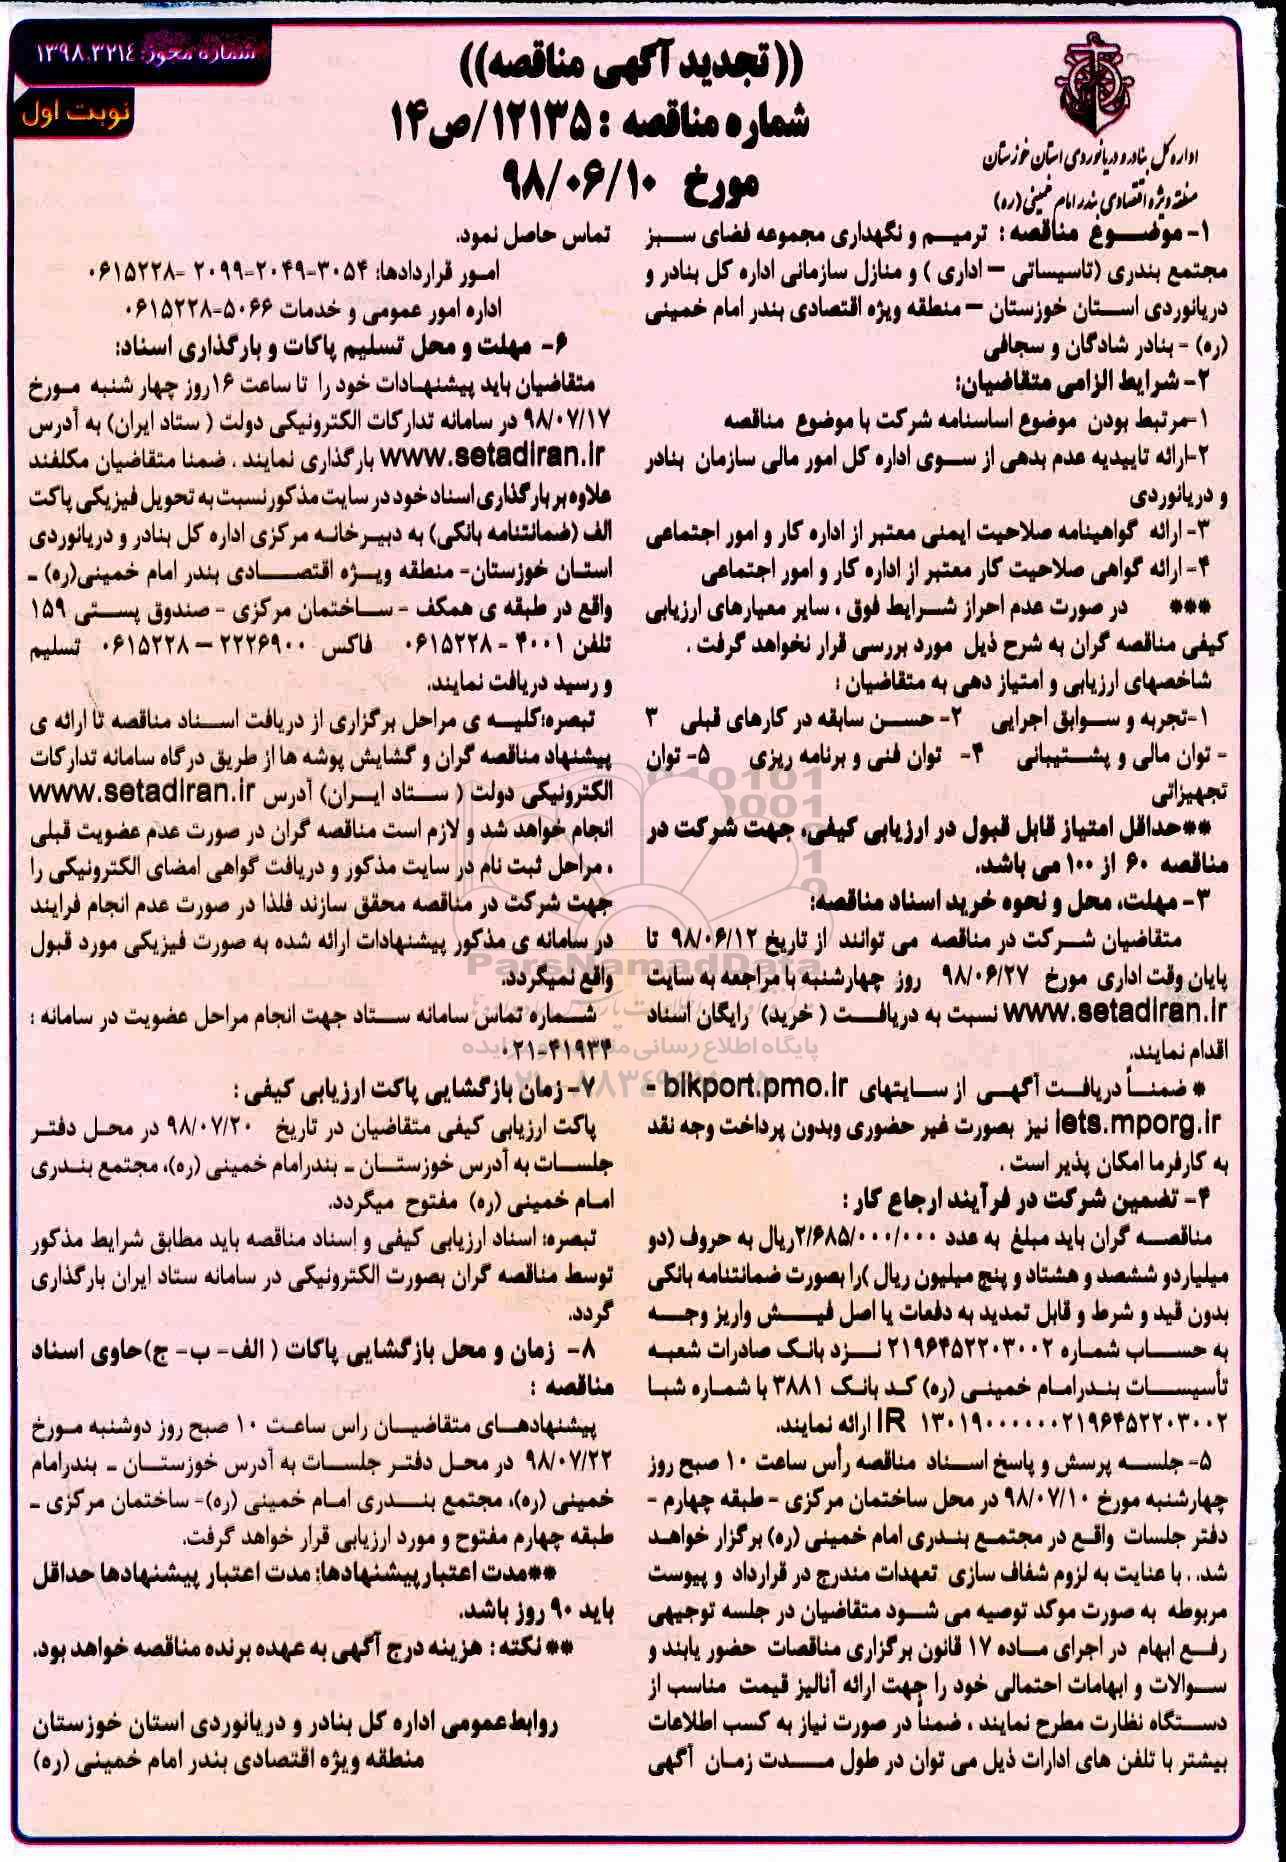 شماره مجوز: ۱۳۹۸.۳۲۱٤
نوبت اول
((تجدید آگهی مناقصه))
شماره مناقصه : ۱۲۱۳۵/ص۱۴
مورخ ۹۸/۰۶/۱۰
اداره کل بنادر و دریانوردی استان خوزستان
منطقه ویژه اقتصادی بندر امام خمینی (ره)
۱- موضــوع مناقصه : ترمیـم و نگهداری مجموعه فضای سـبز
مجتمع بندری (تاسیساتی – اداری ) و منازل سازمانی اداره کل بنادر و
دریانوردی اسـتان خوزستان – منطقه ویژه اقتصادی بندر امام خمینی
(ره) - بنادر شادگان و سجافی
۲- شرایط الزامی متقاضیان:
۱-مرتبط بودن موضوع اساسنامه شرکت با موضوع مناقصه
۲-ارائه تاییدیه عدم بدهی از سـوی اداره کل امور مالی سازمان بنادر
و دریانوردی
۳- ارائه گواهینامه صلاحیت ایمنی معتبر از اداره کار و امور اجتماعی
۴- ارائه گواهی صلاحیت کار معتبر از اداره کار و امور اجتماعی
*** در صورت عدم احراز شـرایط فوق ، سایر معیارهای ارزیابی
کیفی مناقصه گران به شرح ذیل مورد بررسی قرار نخواهد گرفت .
شاخصهای ارزیابی و امتیاز دهی به متقاضیان :
۱-تجربه و سـوابق اجرایی ۲- حسـن سابقه در کارهای قبلی ۳
- توان مالی و پشـتیبانی ۴- توان فنی و برنامه ریزی ۵- توان
تجهیزاتی
**حداقل امتیاز قابل قبول در ارزیابی کیفی، جهت شرکت در
مناقصه ۶۰ از ۱۰۰ می باشد.
۳- مهلت، محل و نحوه خرید اسناد مناقصه:
متقاضیان شـرکت در مناقصه می توانند از تاریخ ۹۸/۰۶/۱۲ تا
پایان وقت اداری مورخ ۹۸/۰۶/۲۷ روز چهارشنبه با مراجعه به سایت
www.setadiran.ir نسبت به دریافـت ( خرید) رایگان اسناد
اقدام نمایند.
* ضمنـاً دریافـت آگهـی از سـایتهای bikport.pmo.ir -
iets.mporg.ir نیز بصورت غیر حضوری وبدون پرداخت وجه نقد
به کارفرما امکان پذیر است .
۴- تضمین شرکت در فرآیند ارجاع کار :
مناقصـه گران باید مبلغ به عدد ۲/۶۸۵/۰۰۰/۰۰۰ریال به حروف (دو
میلیاردو ششصد و هشتاد و پنج میلیون ریال )را بصورت ضمانتنامه بانکی
بدون قید و شرط و قابل تمدید به دفعات یا اصل فیـش واریز وجـه
به حسـاب شماره ۲۱۹۶۴۵۲۲۰۳۰۰۲ نـزد بانـک صادرات شعبـه
تأسیسـات بنـدرامام خمینـی (ره) کـد بانـک ۳۸۸۱ با شماره شبـا
IR ۱۳۰۱۹۰۰۰۰۰۰۰۲۱۹۶۴۵۲۲۰۳۰۰۲ ارائه نمایند.
۵- جلسـه پرسش و پاسخ اسـناد مناقصه رأس ساعت ۱۰ صبح روز
چهارشنبه مورخ ۹۸/۰۷/۱۰ در محل ساختمان مرکزی - طبقه چهارم -
دفتر جلسات واقـع در مجتمـع بنـدری امام خمینی (ره) برگزار خواهـد
شد. . با عنایت به لزوم شفاف سازی تعهدات مندرج در قرارداد و پیوست
مربوطه به صورت موکد توصیه می شـود متقاضیان در جلسه توجیهی
رفـع ابهام در اجرای مـاده ۱۷ قانون برگزاری مناقصات حضور یابند و
سـوالات و ابهامات احتمالی خود را جهت ارائه آنالیز قیمت مناسب از
دسـتگاه نظارت مطرح نمایند ، ضمناً در صورت نیاز به کسب اطلاعات
بیشتر با تلفن های ادارات ذیل می توان در طول مـدت زمان آگهی
تماس حاصل نمود.
امـور قراردادها: ۳۰۵۴-۲۰۴۹-۲۰۹۹ -۰۶۱۵۲۲۸
اداره امور عمومی و خدمات ۵۰۶۶-۰۶۱۵۲۲۸
۶- مهلت و محل تسلیم پاکات و بارگذاری اسناد:
متقاضیان باید پیشنهـادات خود را تا ساعت ۱۶روز چهار شنبه مـورخ
۹۸/۰۷/۱۷ در سامانه تدارکات الکترونیکی دولت ( ستاد ایران) به آدرس
www.setadiran.ir بارگذاری نمایند . ضمنا متقاضیان مکلفند
علاوه بر بارگذاری اسناد خود در سایت مذکور نسبت به تحویل فیزیکی پاکت
الف (ضمانتنامه بانکی) به دبیـرخانـه مرکزی اداره کل بنادر و دریانوردی
استـان خوزستان- منطقه ویـژه اقتصـادی بندر امام خمینی(ره) ـ
واقع در طبقه ی همکف - ساختمان مرکزی - صندوق پسـتی ۱۵۹
تلفن ۴۰۰۱ - ۰۶۱۵۲۲۸ فاکس ۲۲۲۶۹۰۰ – ۰۶۱۵۲۲۸ تسلیم
و رسید دریافت نمایند.
تبصره:کلیـه ی مراحل برگزاری از دریافت اسـناد مناقصه تا ارائه ی
پیشنهاد مناقصه گران و گشایش پوشه ها از طریق درگاه سامانه تدارکات
الکترونیکی دولت ( ستاد ایـران) آدرس www.setadiran.ir
انجام خواهد شد و لازم است مناقصه گران در صورت عدم عضویت قبلی
، مراحل ثبت نام در سایت مذکور و دریافت گواهی امضای الکترونیکی را
جهت شرکت در مناقصه محقق سازند فلذا در صورت عدم انجام فرایند
در سامانه ی مذکور پیشنهادات ارائه شده به صورت فیزیکی مورد قبول
واقع نمیگردد.
شـماره تماس سامانه سـتاد جهت انجام مراحل عضویت در سامانه :
۰۲۱-۴۱۹۳۴
۷- زمان بازگشایی پاکت ارزیابی کیفی :
پاکت ارزیابی کیفی متقاضیان در تاریخ ۹۸/۰۷/۲۰ در محـل دفتـر
جلسـات به آدرس خوزستـان ـ بندرامام خمینی (ره)، مجتمع بنـدری
امـام خمینی (ره) مفتوح میگردد.
تبصره: اسناد ارزیابی کیفی و اسناد مناقصه باید مطابق شرایط مذکور
توسط مناقصه گران بصورت الکترونیکی در سامانه ستاد ایران بارگذاری
گردد.
۸- زمان و محل بازگشایی پاکات ( الف- ب- ج)حاوی اسناد
مناقصه :
پیشنهادهـای متقاضیـان راس ساعـت ۱۰ صبح روز دوشنبه مـورخ
۹۸/۰۷/۲۲ در محـل دفتر جلسـات به آدرس خوزستـان ـ بندرامام
خمینی (ره)، مجتمع بنـدری امام خمینی (ره)- ساختمان مرکزی ـ
طبقه چهارم مفتوح و مورد ارزیابی قرار خواهد گرفت.
**مدت اعتبار پیشنهادها: مدت اعتبار پیشنهادها حداقل
باید ۹۰ روز باشد.
** نکته : هزینه درج آگهی به عهده برنده مناقصه خواهد بود.
روابط عمومی اداره کل بنادر و دریانوردی استان خوزستان
منطقه ویژه اقتصادی بندر امام خمینی (ره)
ParsNamadData
پایگاه اطلاع رسانی